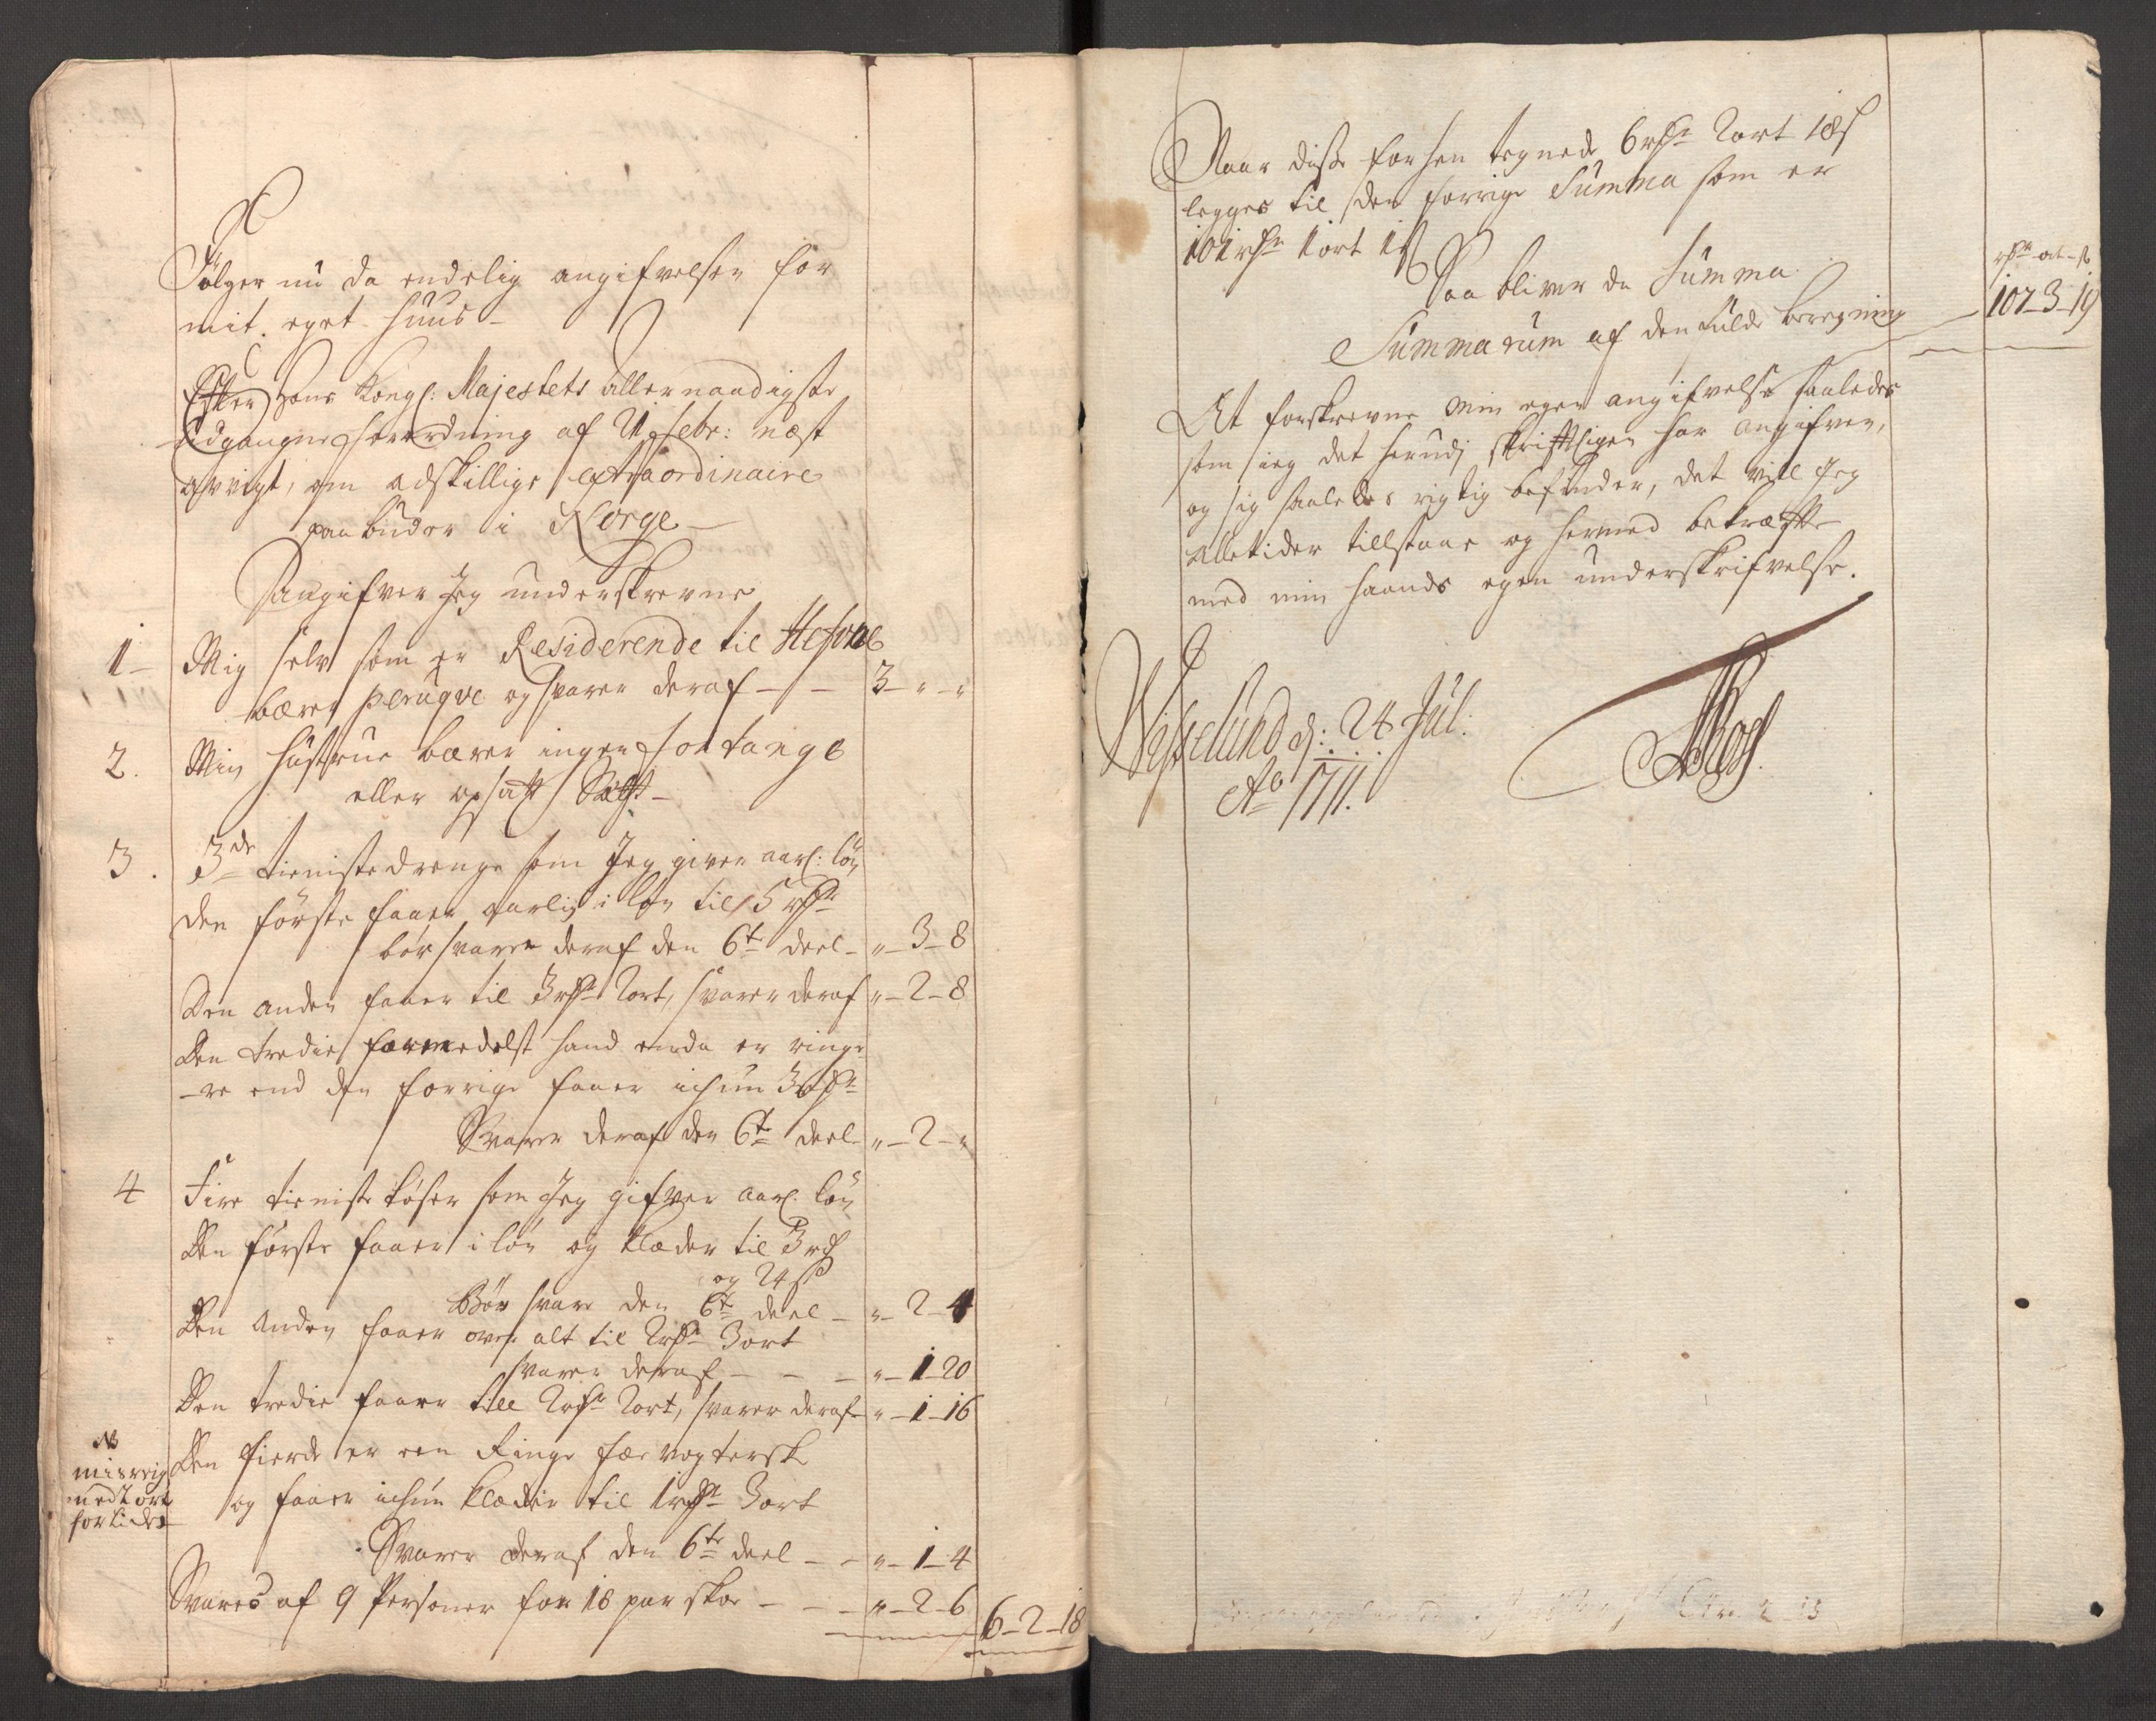 Følger nu da endelig angifvelsen for
mit eget huus
Efter Hans Kongl: Majestets allernaadigste
udgangne forordning af febr: næst
afvigt, om adskillige extraordinaire
paabuder i Norge
Saa angifver Jeg underskrevne
1 Mig selv som er Residerende til
bærer perugve og svarer deraf 3 - " - "
2. Min hustrue bærer ingen fontange
eller opsatt Sætt
3. 3de tieniste drenge som Jeg giver aarl: løn
den første faaer aarlig i løn til 5 rdr
bør svare deraf den 6te deel " - 3 - 8
Den anden faaer til 3 rdr 2 ort, svarer deraf " - 2 - 8
Den tredie formedelst hand enda er ringe
-re end den forrige faaer ichun 3 rdr
Svarer deraf den 6te deel " - 2 - "
4 Fire tieniste tøser som Jeg gifver aarl: løn
Den første faaer i løn og klæder til 3 rdr
og 24 s
Bør svare den 6te deel " - 2 - 4
Den anden faaer over alt til 2 rdr 3 ort
svarer deraf " - 1 - 20
Den tredie faaer till 2 rdr 2 ort, svarer deraf " - 1 - 16
NB
med 2 ort
for lidet
Den fierde er een Ringe fæe vogterske
og faaer ichun klæder til 1 rdr 3 ort
Svarer deraf den 6te deel " - 1 - 4
Svares af 9 Personer for 18 par skoe " - 2 - 6
6 - 2 - 18
Naar disse forhen tegnede 6 rdr 2 ort 18 s
legges til den forrige Summa som er
101 rdr 1 ort 1 s
Saa bliver da Summa
rdr - ort - s
Summarum af den fulde beregning 107 - 3 - 19
At forskrevne min egen angifvelse saaledes
som jeg det herudj skrifftligen har angifven,
og sig saaledes rigtig befinder, det vill Jeg
alletider tillstaae og hermed bekræffte
med min haands egen underskrifvelse.
d: 24 Jul:
Ao 1711.